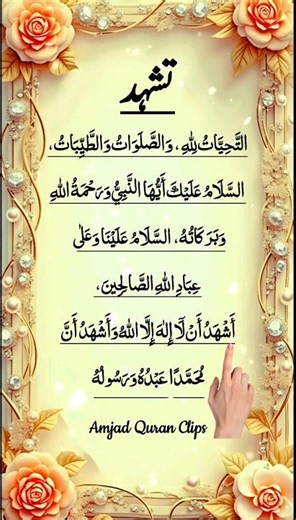 تشہد
التَّحِيَّاتُ لِلّٰهِ، وَالصَّلَوَاتُ وَالطَّيِّبَاتُ،
السَّلَامُ عَلَيْكَ أَيُّهَا النَّبِيُّ وَرَحْمَةُ اللهِ
وَبَرَكَاتُهُ، السَّلَامُ عَلَيْنَا وَعَلٰى
عِبَادِ اللهِ الصَّالِحِينَ،
أَشْهَدُ أَنْ لَا إِلٰهَ إِلَّا اللهُ وَأَشْهَدُ أَنَّ
مُحَمَّدًا عَبْدُهُ وَرَسُولُهُ
Amjad Quran Clips